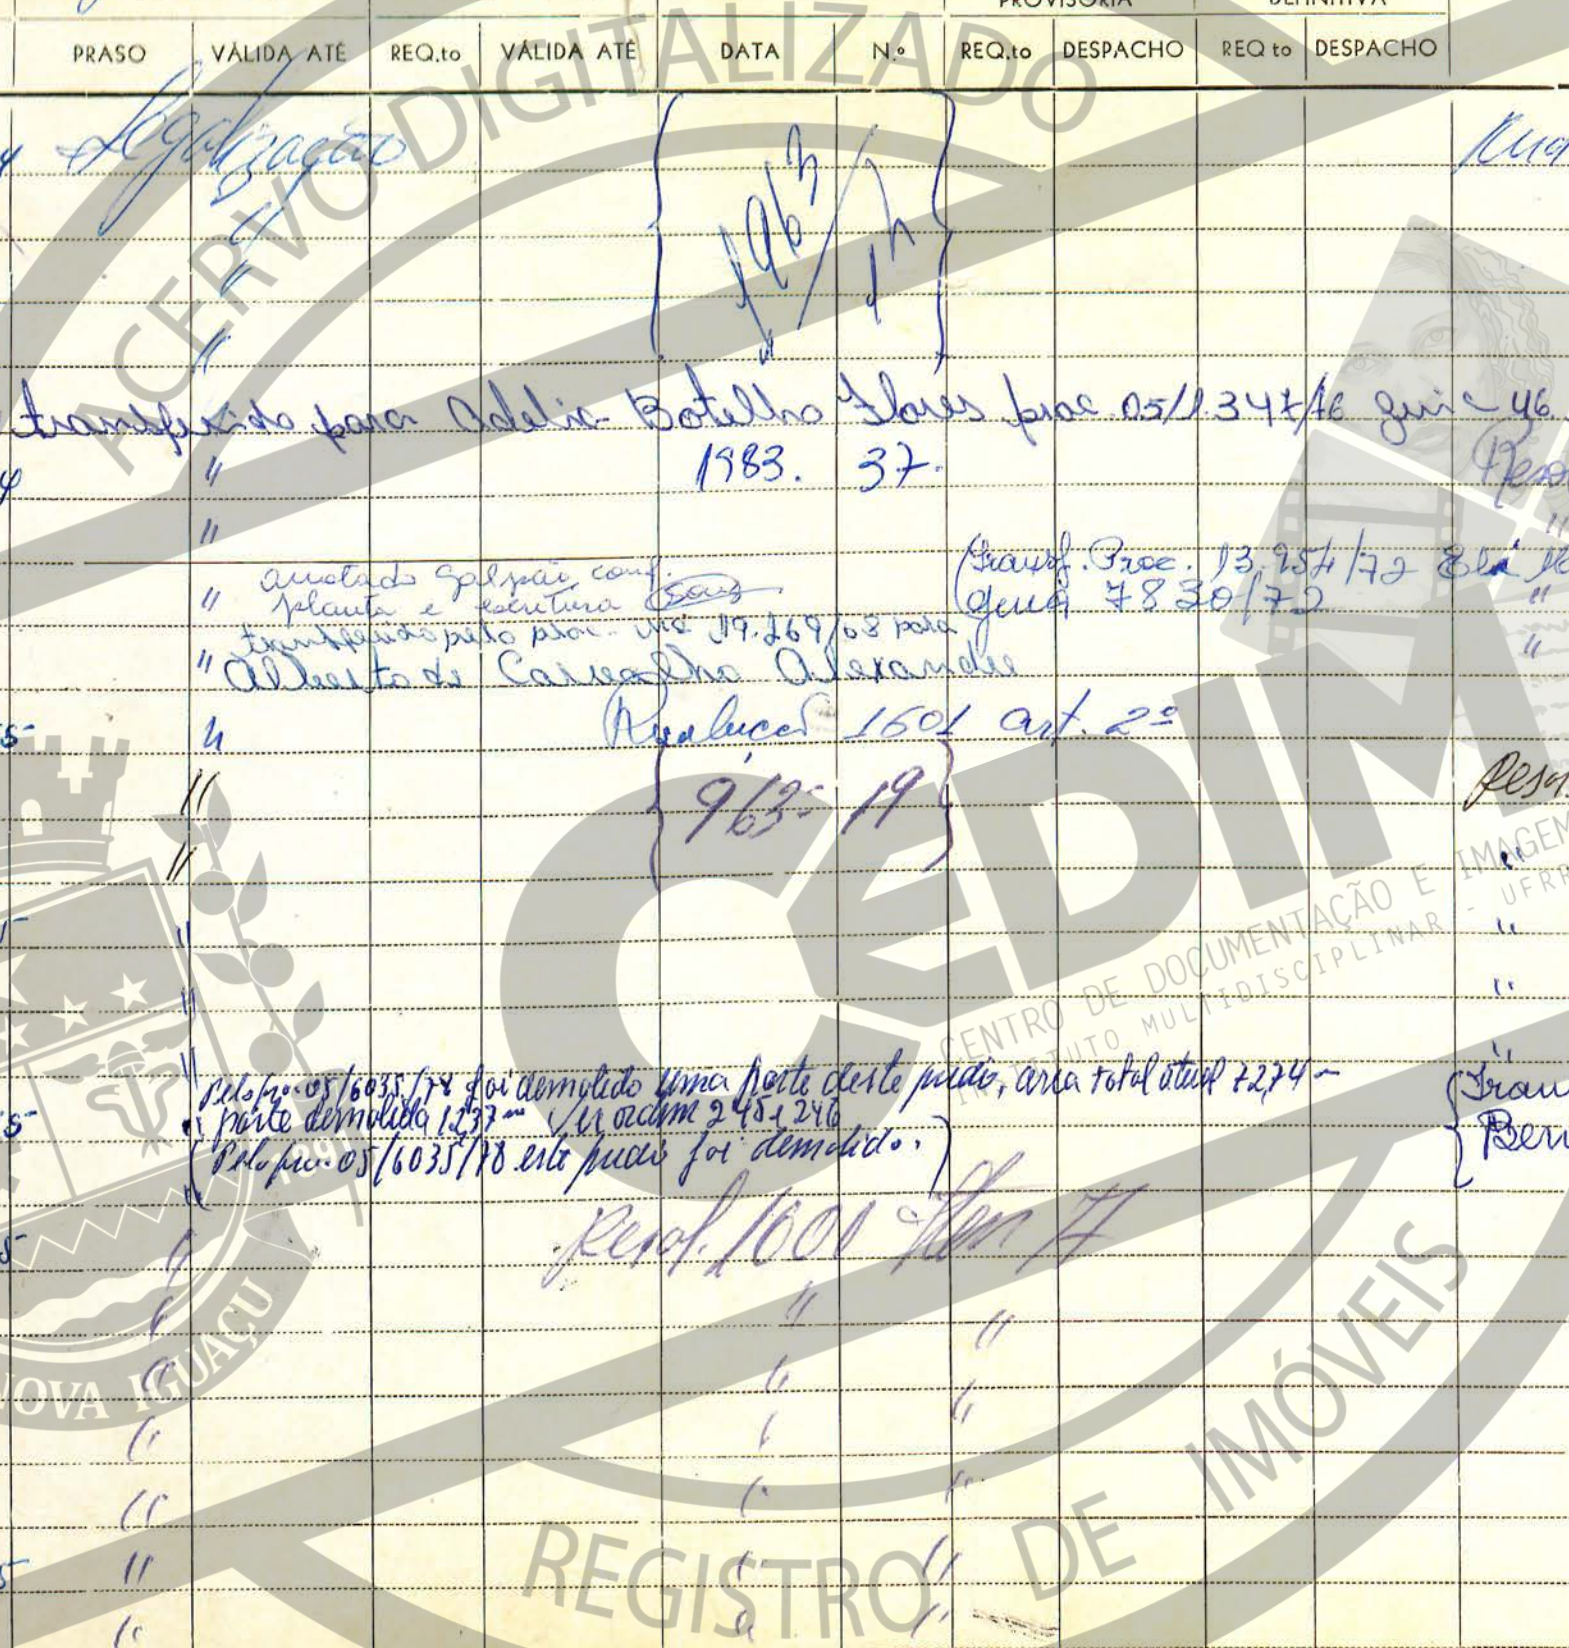 PROVISÓRIA DEFINITIVA
PRASO VÁLIDA ATÉ REQ.to VÁLIDA ATÉ DATA N.º REQ.to DESPACHO REQ to DESPACHO
Legalização
1963/12
"
"
"
transferido para Adelia Botelho Flores proc 05/1347/76 guia 46
" 1983. 37.
"
Transf. Proc. 13.954/72
guia 7830/72
" anotado galpão conf.
planta e escritura
transferido pelo proc. 19.269/68 para
" Alberto de Carvalho Alexandre
" Resolução 1601 art. 2º
" 963 - 19
"
"
"
" Pelo pro. 05/6035/78 foi demolido uma parte deste predio, area total atual 72,74
parte demolida 12,37 Ver ordem 245 e 246
Pelo pro. 05/6035/78 este predio foi demolido.
Resol. 1601 Item 7
" " "
" " "
" " "
" " "
" " "
" " "
ACERVO DIGITALIZADO
CEDIM
CENTRO DE DOCUMENTAÇÃO E IMAGEM
INSTITUTO MULTIDISCIPLINAR - UFRR
NOVA IGUAÇU
REGISTRO DE IMÓVEIS